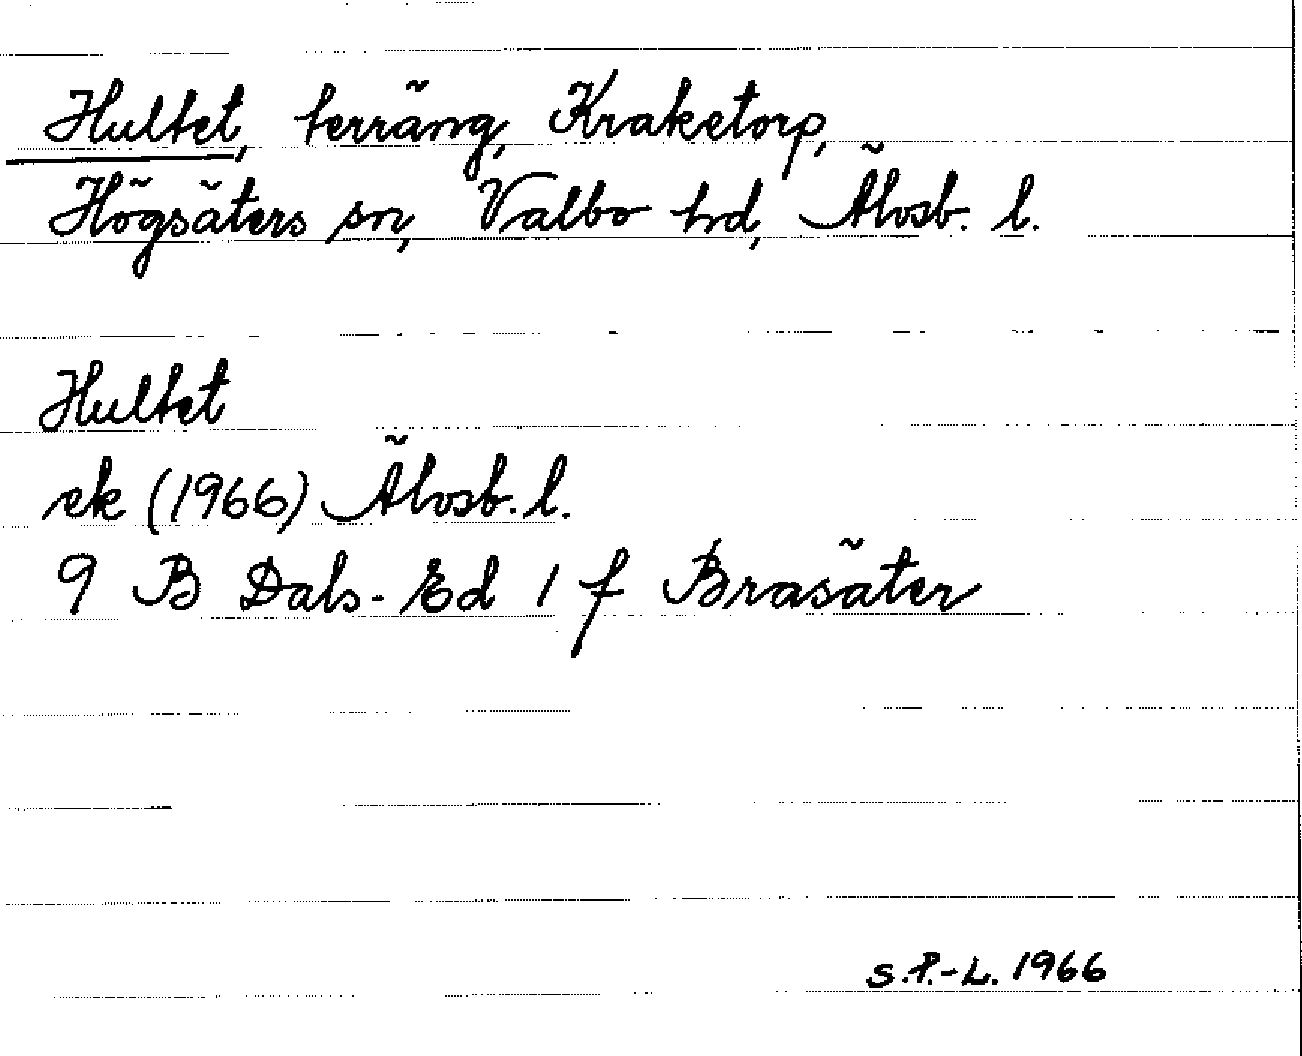 Hultet, terräng, Kraketorp,
Högsäters sn, Valbo hd, Älvsb. l.
Hultet
ek (1966) Älvsb. l.
9 B Dals-Ed 1 f Brasäter
S.P.-L. 1966